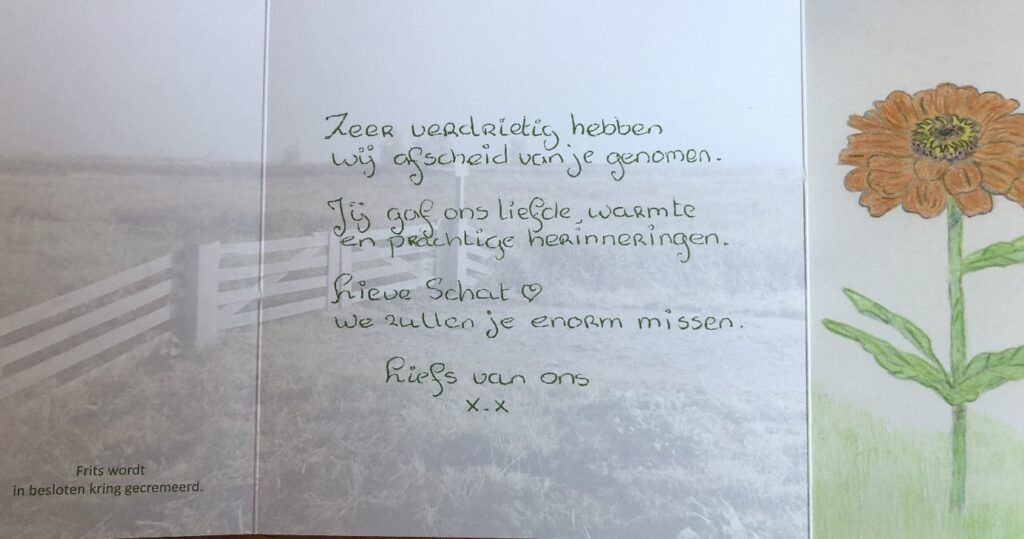 Zeer verdrietig hebben
wij afscheid van je genomen.
Jij gaf ons liefde, warmte
en prachtige herinneringen.
Lieve Schat ♡
we zullen je enorm missen.
Liefs van ons
x.x
Frits wordt
in besloten kring gecremeerd.